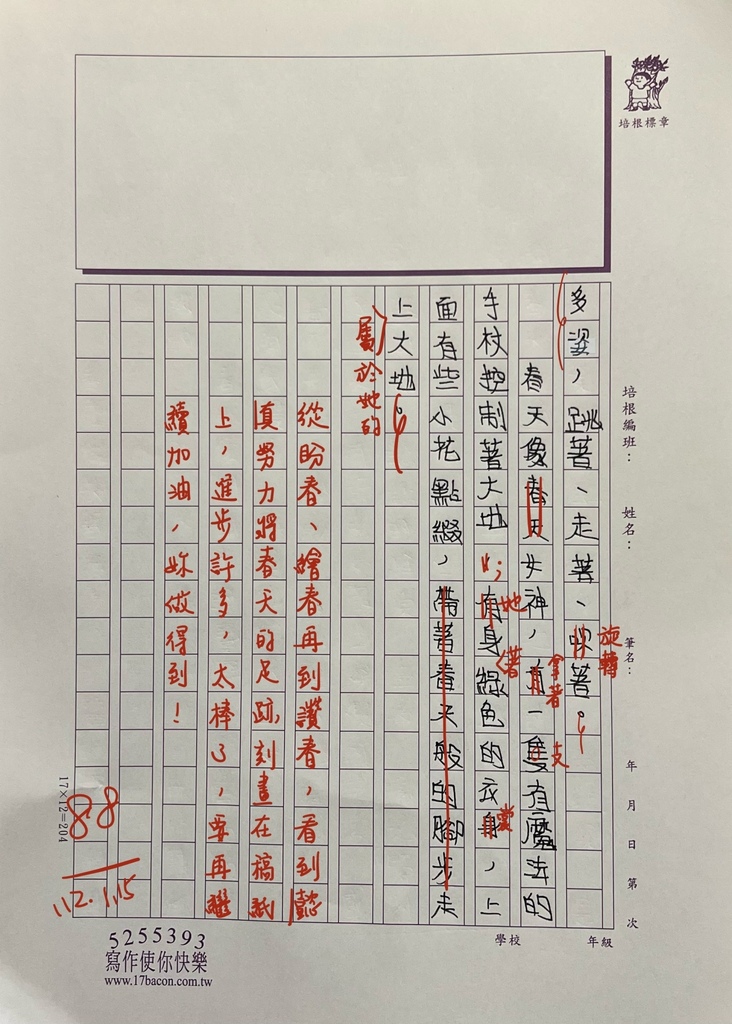 培根標章
多姿，跳著、走著、吹著。
旋轉
春天像春天女神，有一隻有魔法的
拿著
支
手杖控制著大地，有身綠色的衣身，上
她
著
裳
面有些小花點綴，帶著春天般的腳步走
上大地。
屬於她的
從盼春、繪春再到讚春，看到懿
真努力將春天的足跡，刻畫在稿紙
上，進步許多，太棒了，要再繼
續加油，妳做得到！
88
112.1.15
培根編班：
姓名：
筆名：
年 月 日 第 次
17×12=204
學校
年級
5255393
寫作使你快樂
www.17bacon.com.tw